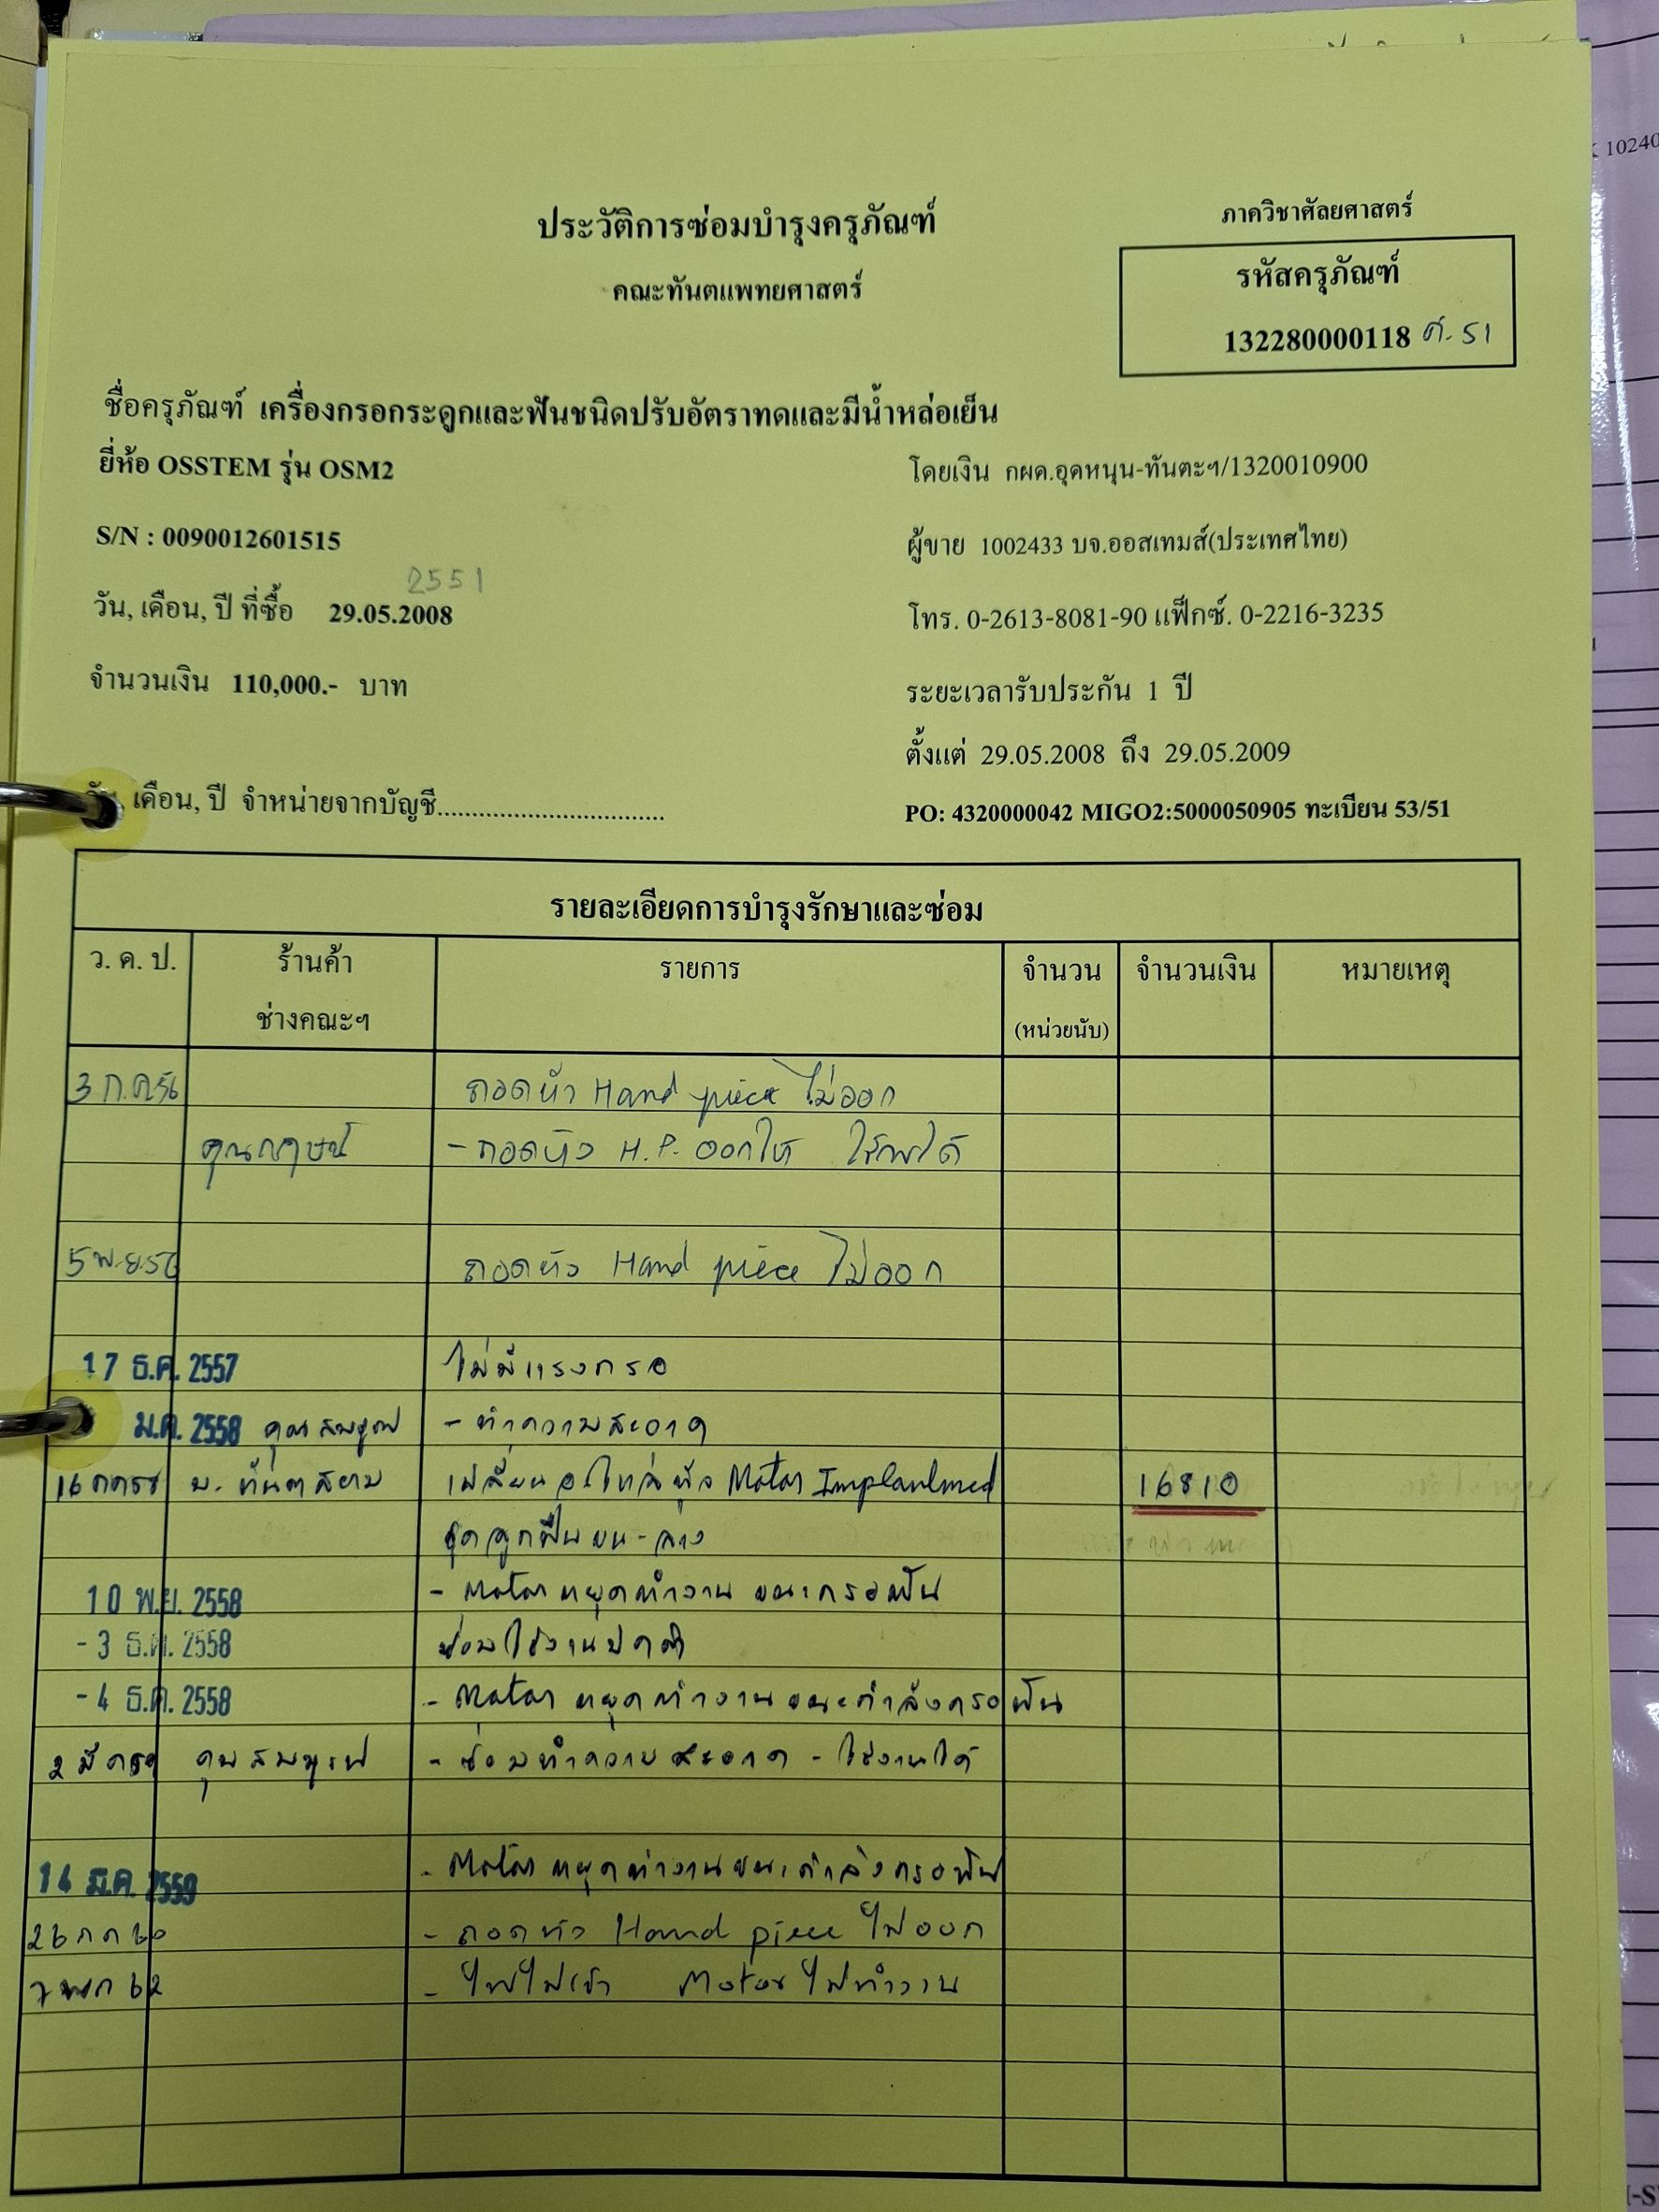 10240
ประวัติการซ่อมบำรุงครุภัณฑ์
ภาควิชาศัลยศาสตร์
คณะทันตแพทยศาสตร์
รหัสครุภัณฑ์
132280000118 ศ.51
ชื่อครุภัณฑ์ เครื่องกรอกระดูกและฟันชนิดปรับอัตราทดและมีน้ำหล่อเย็น
ยี่ห้อ OSSTEM รุ่น OSM2
โดยเงิน กผด.อุดหนุน-ทันตะฯ/1320010900
S/N : 0090012601515
ผู้ขาย 1002433 บจ.ออสเทมส์(ประเทศไทย)
2551
วัน, เดือน, ปี ที่ซื้อ 29.05.2008
โทร. 0-2613-8081-90 แฟ็กซ์. 0-2216-3235
จำนวนเงิน 110,000.- บาท
ระยะเวลารับประกัน 1 ปี
ตั้งแต่ 29.05.2008 ถึง 29.05.2009
เดือน, ปี จำหน่ายจากบัญชี.................................
PO: 4320000042 MIGO2:5000050905 ทะเบียน 53/51
รายละเอียดการบำรุงรักษาและซ่อม
ว. ด. ป. ร้านค้า รายการ จำนวน จำนวนเงิน หมายเหตุ
ช่างคณะฯ (หน่วยนับ)
3 ก.ค 56 ถอดหัว Hand piece ไม่ออก
- ถอดหัว H.P. ออกให้ ใช้การได้
5 พ.ย 56 ถอดหัว Hand piece ไม่ออก
17 ธ.ค. 2557 ไม่มีแรงกรอ
ม.ค. 2558 - ทำความสะอาด
16 กค 58 บ. ทันตสยาม เปลี่ยนอะไหล่หัว Motor Implantmed 16810
ชุดลูกปืนบน-ล่าง
10 พ.ย. 2558 - Motor หยุดทำงาน ขณะกรอฟัน
- 3 ธ.ค. 2558 ซ่อมใช้งานปกติ
- 4 ธ.ค. 2558 - Motor หยุดทำงานขณะกำลังกรอฟัน
2 มีค 59 - ซ่อมทำความสะอาด - ใช้งานได้
14 มี.ค. 2559 - Motor หยุดทำงานขณะกำลังกรอฟัน
26 กค 60 - ถอดหัว Hand piece ไม่ออก
7 62 - ไฟไม่เข้า Motor ไม่ทำงาน